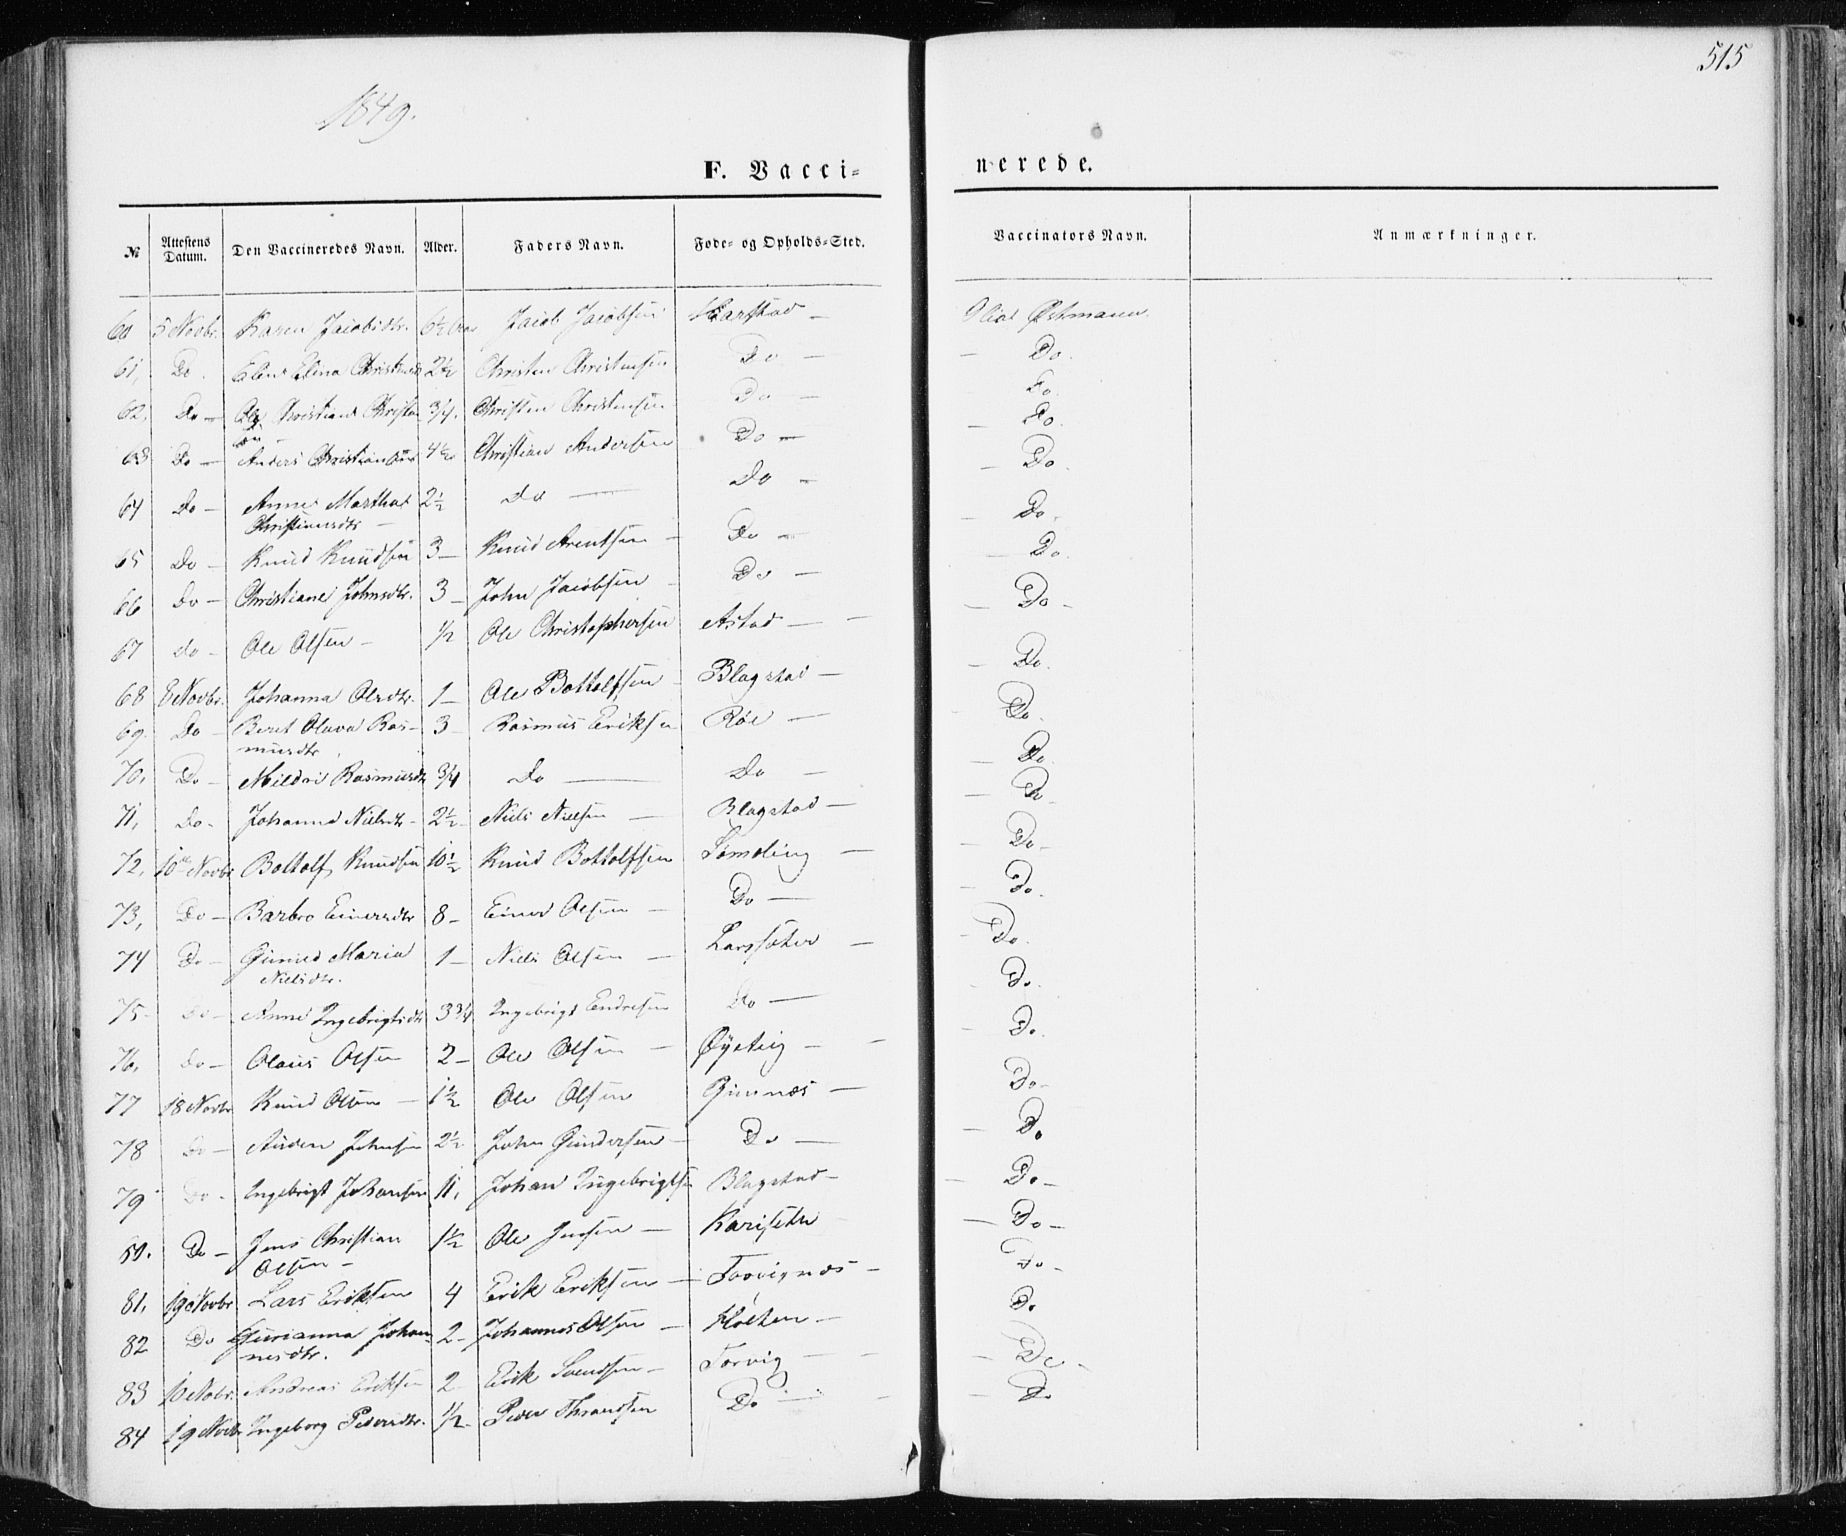 515
1849.
F. Vacci=
nerede.
№ Attestens Datum. Den Vaccineredes Navn. Alder. Faders Navn. Føde= og Opholds=Sted. Vaccinators Navn. Anmærkninger.
60 5 Novbr. Karen Jacobsdtr. 6½ Jacob Jacobsen Harstad — Østmann.
61, Do. Elen Elina 2½ Christen Christensen Do — — Do.
62, Do — Ole Christian ¾. Christen Christensen Do — Do.
63 Do — Anders Christiansen 4½ Christian Andersen Do — Do.
64 Do — Anne Martha 2½ Do — Do — — Do.
Christiansdtr —
65 Do — Knud Knudsen 3 — Knud Arentsen — Do — — Do.
66 Do — Christiane Johnsdtr. 3 — John Jacobsen — Do — — Do.
67 do — Ole Olsen — ½ Ole Christophersen Astad — — Do —
68 8 Novbr. Johanna Olsdtr. 1 — Ole Bottolfsen — Blagstad — — Do.
69. Do — Beret Olava Ras= 3 — Rasmus Eriksen Röe — — Do.
musdtr.
70, Do — Mildri Rasmusdtr ¾ Do — Do — — Do.
71, Do — Johanna Nielsdtr — 2½ — Niels Nielsen — Blagstad — — Do.
72, 10de Novbr Bottolf Knudsen 10½ Knud Bottolfsen — — Do —
73, Do — Barbro Einersdtr 8 — Einer Olsen — Do — — Do.
74 Do — Maria 1 — Niels Olsen — Larssæter — — Do.
Nielsdtr.
75 Do — Anne Ingebrigtsdtr 3¾ Ingebrigt Endresen Do — — Do.
76, Do — Olaus Olsen 2 — Ole Olsen — Øysteig — — Do.
77 18 Novbr Knud Olsen — 1½ Ole Olsen Gimnæs — Do —
78 Do — Auden Johnsen 2½ John Gundersen — Do — — Do
79 Do — Ingebrigt Johansen 11, Johan Ingebrigtsen Blagstad — — Do —
80. Do — Jens Christian 1½ Ole Jensen — Karisetr — Do —
Olsen —
81, 19 Novbr Lars Eriksen 4 Erik Eriksen — Torvignæs — Do —
82 Do Gurianna Johan= 2 — Johannes Olsen — Holten — Do
nesdtr.
83 Andreas Eriksen 2 Erik Svendsen — Torvig — — Do —
84 19 Novbr Ingeborg Pedersdtr. ½ — Peder Thrandsen Do — — Do